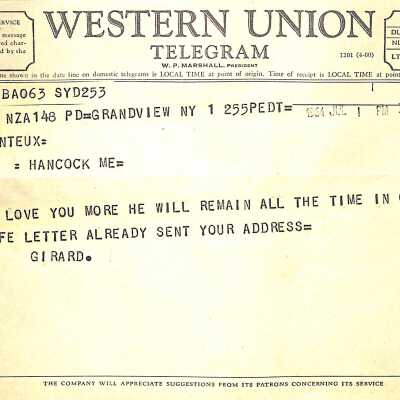 SERVICE
message
ed char-
d by the
WESTERN UNION
TELEGRAM
W. P. MARSHALL, PRESIDENT
1201 (4-60)
DL
NL
LT
me shown in the date line on domestic telegrams is LOCAL TIME at point of origin. Time of receipt is LOCAL TIME at point of destination
BA063 SYD253
NZA148 PD=GRANDVIEW NY 1 255PEDT= JUL 1 PM
NTEUX=
= HANCOCK ME=
LOVE YOU MORE HE WILL REMAIN ALL THE TIME IN
FE LETTER ALREADY SENT YOUR ADDRESS=
GIRARD.
THE COMPANY WILL APPRECIATE SUGGESTIONS FROM ITS PATRONS CONCERNING ITS SERVICE